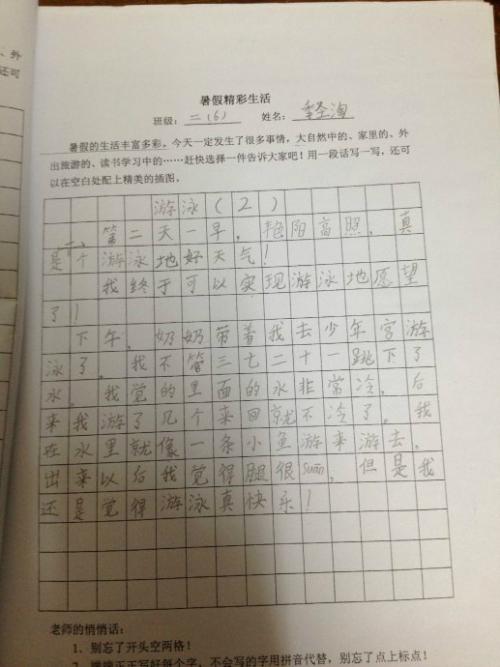 、外
还可
暑假精彩生活
班级：二(6) 姓名：
暑假的生活丰富多彩，今天一定发生了很多事情，大自然中的、家里的、外
出旅游的、读书学习中的……赶快选择一件告诉大家吧！用一段话写一写，还可
以在空白处配上精美的插图。
游泳(2)
第二天一早，艳阳高照，真
是个游泳地好天气！
我终于可以实现游泳地愿望
了！
下午，奶奶带着我去少年宫游
泳了，我不管三七二十一跳下了
水，我觉的里面的水非常冷，后
来我游了几个来回就不冷了，我
在水里就像一条小鱼游来游去，
出来以后我觉得腿很suān，但是我
还是觉得游泳真快乐！
老师的悄悄话：
1、别忘了开头空两格！
2、端端正正写好每个字，不会写的字用拼音代替，别忘了点上标点！